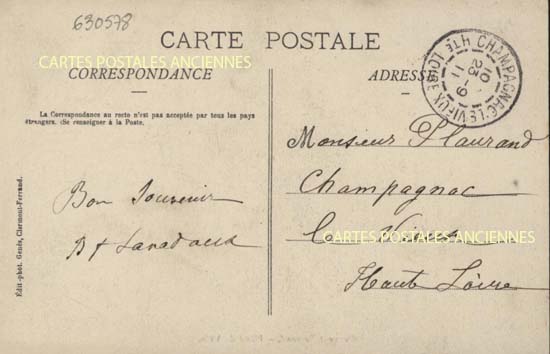 630578
CARTE POSTALE
CARTES POSTALES ANCIENNES
CORRESPONDANCE
ADRESSE
CHAMPAGNAC-LE-VIEUX HTE LOIRE
10
23 -9
11
La Correspondance au recto n'est pas acceptée par tous les pays
étrangers. (Se renseigner à la Poste.)
Monsieur Plaurand
Champagnac
le Vieux
CARTES POSTALES ANCIENNES
Haute Loire
Bon Souvenir
Édit.-phot. Gendre, Clermont-Ferrand.